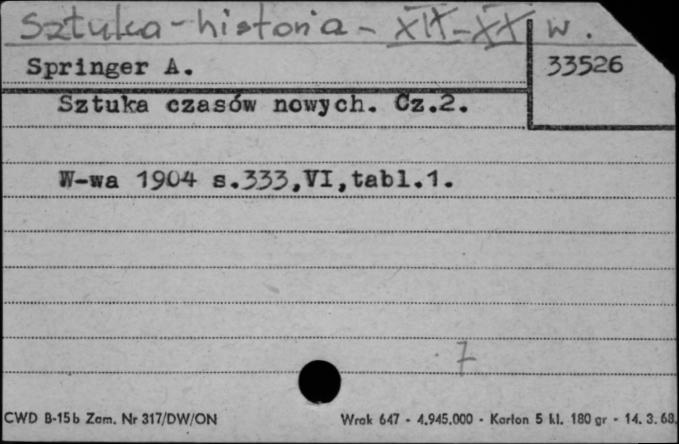 Sztuka - historia - XIX-XX w.
Springer A.
33526
Sztuka czasów nowych. Cz.2.
W-wa 1904 s.333,VI,tabl.1.
7
CWD B-15b Zam. Nr 317/DW/ON
Wrak 647 - 4.945.000 - Karton 5 kl. 180 gr - 14. 3. 68.